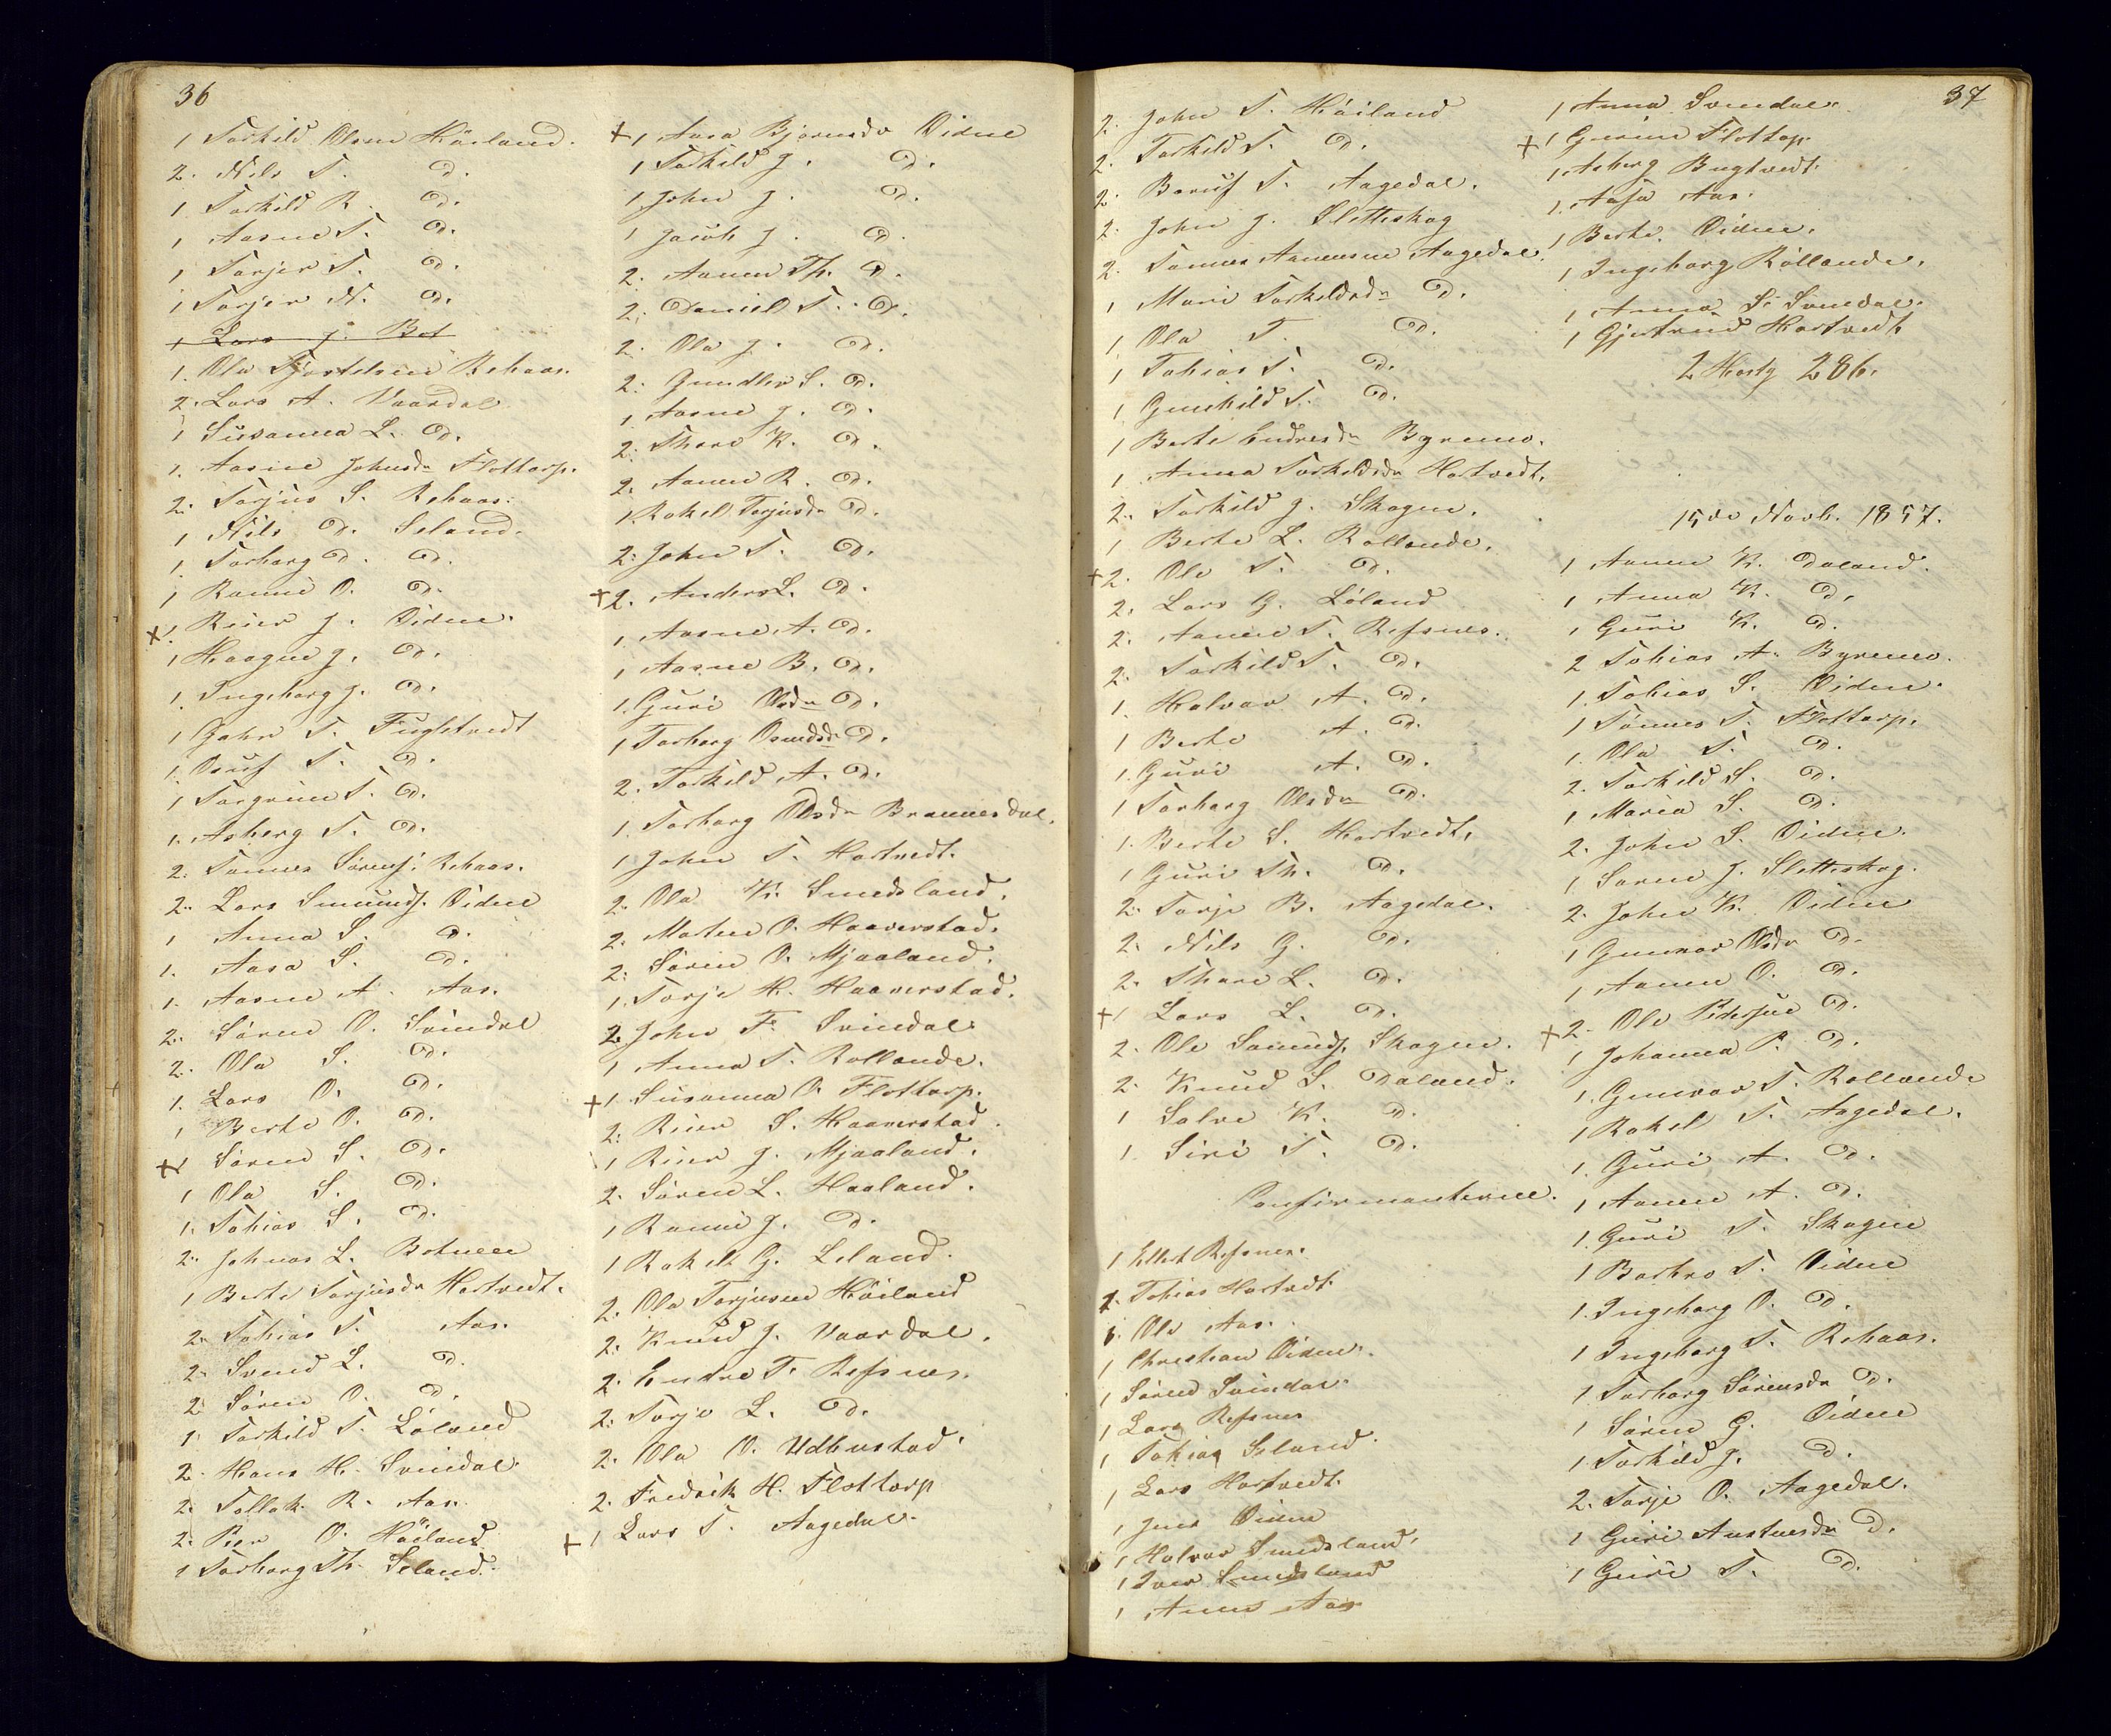 36
1 Torkild Olsen Håiland.
2. Nils T. D.
1. Torkild R. D.
1 Aasne T. D.
1 Torjer T. D.
1 Torjer N. D.
1 Lars J. Bot
1. Ola Kjostelsen Rehaas.
2. Lars A. Vaardal
1 Susanna L. D.
1. Aasne Johnsdr Flottorp.
2. Torjus S. Rehaas.
1 Nils D. Seland.
1 Torborg D. D.
1 Rannei O. D.
+ 1. Reier J. Eidne.
1 Haagne J. D.
1. Ingeborg J. D.
1 Gahre T. Fuglstvedt
1. Osuf T. D.
1 Torgrim T. D.
1. Asberg T. D.
2. Tønnes Sørens. Rehaas.
2. Lars Smunds. Eidne
1 Anna S. D.
1. Aasa S. D.
1. Aasne A. Aas.
2. Søren O. Svindal
2. Ola S. D.
1. Lars O. D.
1 Berte O. D.
+1 Søren S. D.
1 Ola S. D.
1. Tobias S. D.
2. Johnas L. Botnene
1 Berte Torjusdr Hortvedt.
2. Tobias T. Aas.
2. Svend L. D.
2. Søren O. D.
1. Torkild T. Løland
2. Hans H. Svindal
2. Tollak R. Aas.
2. Peer O. Håiland
1 Torborg Th. Seland.
+1 Aasa Bjørnsdr Eidne
1 Torkild J. D.
1 John J. D.
1 Jacob J. D.
2. Aanen Th. D.
2. Daniel T. D.
2. Ola J. D.
2. Gundler S. D.
1 Aasne J. D.
2. Thore K. D.
2. Aanen R. D.
1. Rakel Torjusdr D.
2. John T. D.
+2. Anders L. D.
1. Aasne A. D.
1 Aasne B. D.
1. Guri Olsdr D.
1 Torborg Osmdsdr D.
2. Torkild A. D.
1. Torborg Olsdr Brunnesdal.
1 John T. Hortvedt.
2. Ola K. Smedsland.
2. Morten O. Haaverstad.
2. Søren O. Mjaaland.
1. Torje H. Haaverstad.
2. John F. Svindal
1 Anna T. Rollande.
+1. Susanna O. Flottorp.
2. Reier S. Haaverstad.
1 Reier J. Mjaaland.
2. Søren L. Haaland.
1 Rannei J. D.
1 Rakel G. Leland.
2. Ola Torjusen Håiland
2. Knud J. Vaardal.
2. Endre T. Refsnes.
2. Torje L. D.
2. Ola O. Udhustad.
2. Fredrik H. Flottorp
+1 Lars T. Aagedal.
37
2. John T. Håiland
2. Torkild T. D.
2. Boruf T. Aagedal.
2. John J. Slettiskog
2. Tønnes Aanensen Aagedal.
1 Marie Torkildsdr D.
1 Ola T. D.
1 Tobias T. D.
1 Gunhild T. D.
1 Berte Endresdr Byremo.
1. Anna Torkildsdr Hortvedt.
2. Torkild J. Skagen.
1 Berte L. Rollande.
+2. Ole T. D.
2. Lars G. Løland
2. Aanen T. Refsnes.
2. Torkild T. D.
1. Halvor A. D.
1 Berte A. D.
1. Guri A. D.
1 Torborg Olsdr D.
1. Berte S. Hortvedt.
1 Guri Th. D.
2. Torje B. Aagedal.
2. Nils G. D.
2. Thore L. D.
+1 Lars L. D.
2. Ole Samuds. Skagen.
2. Knud S. Daland.
1 Salve K. D.
1. Siri T. D.
Confirmanterne.
1 Ellert Refsnes.
1. Tobias Hortvedt.
1. Ole Aas.
1 Christian Eidne.
1 Søren Svindal.
1 Lars Refsnes
1 Tobias Seland.
1 Lars Hortvedt.
1 Jens Eidne
1 Halvor Smedsland.
1 Iver Smedsland
1 Anne Aas
1 Anna Svindal.
+1 Gurine Flottop.
1 Asberg Bugtvedt.
1. Aasa Aas.
1 Berte Eidne.
1 Ingeborg Rollande.
1 Anna S. Svindal.
1 Gjertrud Hortvedt.
2 Hostg 286.
15de Novb. 1857.
1 Aanen K. Daland.
1 Anna K. D.
1 Guri K. D.
2 Tobias A. Byremo.
1. Tobias S. Eidne.
1 Tønnes T. Flottorp.
1. Ola T. D.
2. Torkild S. D.
1 Maren S. D.
2. John S. Eidne.
1. Søren J. Slettiskog.
2. John K. Eidne
1 Gunvor Olsdr D.
1 Aanen O. D.
+2. Ole Pedersen D.
1 Johanna P. D.
1. Gunvor T. Rollande
1 Rakel T. Aagedal.
1. Guri A. D.
1 Aanen A. D.
1. Guri T. Skagen
1 Barbro T. Eidne
1. Ingeborg O. D.
1 Ingeborg T. Rehaas.
1 Torborg Sørensdr D.
1 Søren G. Eidne
1 Torkild J. D.
2. Torje O. Aagedal.
1 Guri Anstensdr D.
1 Guri T. D.